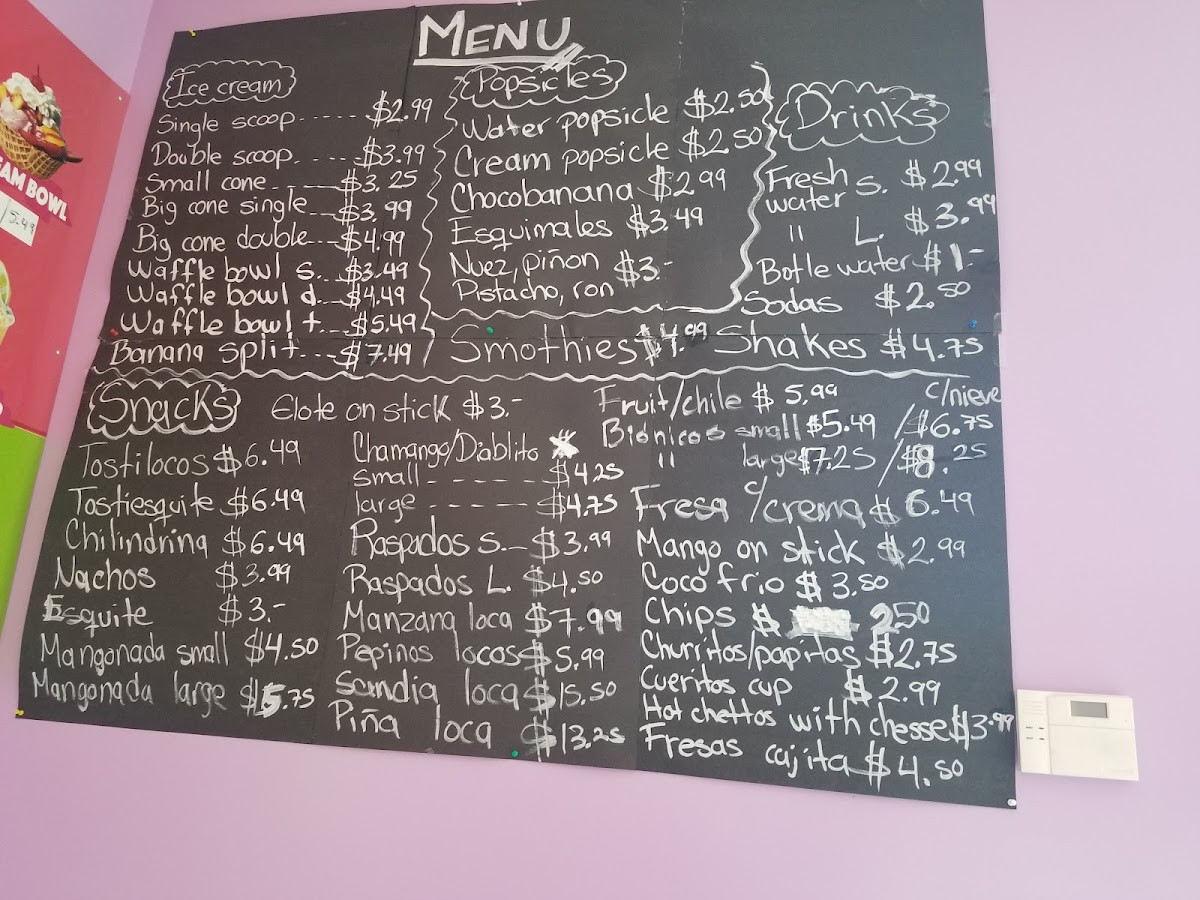 AM BOWL
5.49
MENU
Ice cream
Single scoop ----- $2.99
Double scoop ---- $3.99
Small cone - - --- $3.25
Big cone single --- $3.99
Big cone double --- $4.99
Waffle bowl s. -- $3.49
Waffle bowl d -- $4.49
Waffle bowl t -- $5.49
Banana split --- $7.49
Popsicles
Water popsicle $2.50
Cream popsicle $2.50
Chocobanana $2.99
Esquimales $3.49
Nuez, piñon $3.-
Pistacho, ron
Drinks
Fresh s. $2.99
water
" L. $3.99
Botle water $1-
Sodas $2.50
Smothies $4.99 Shakes $4.75
Snacks Elote on stick $3.-
Tostilocos $6.49
Tostiesquite $6.49
Chilindrina $6.49
Nachos $3.99
Esquite $3.-
Mangonada small $4.50
Mangonada large $5.75
Chamango/Diablito
small ------- $4.25
large ------- $4.75
Raspados s. -- $3.99
Raspados L. $4.50
Manzana loca $7.99
Pepinos locos $5.99
Sandia loca $15.50
Piña loca $13.25
Fruit/chile $ 5.99 c/nieve
Biónicos small $5.49 / $6.75
" large $7.25 / $8.25
Fresa c/crema $ 6.49
Mango on stick $2.99
Coco frio $ 3.50
Chips $ 2.50
Churritos/papitas $2.75
Cueritos cup $ 2.99
Hot chettos with chesse $3.99
Fresas cajita $ 4.50